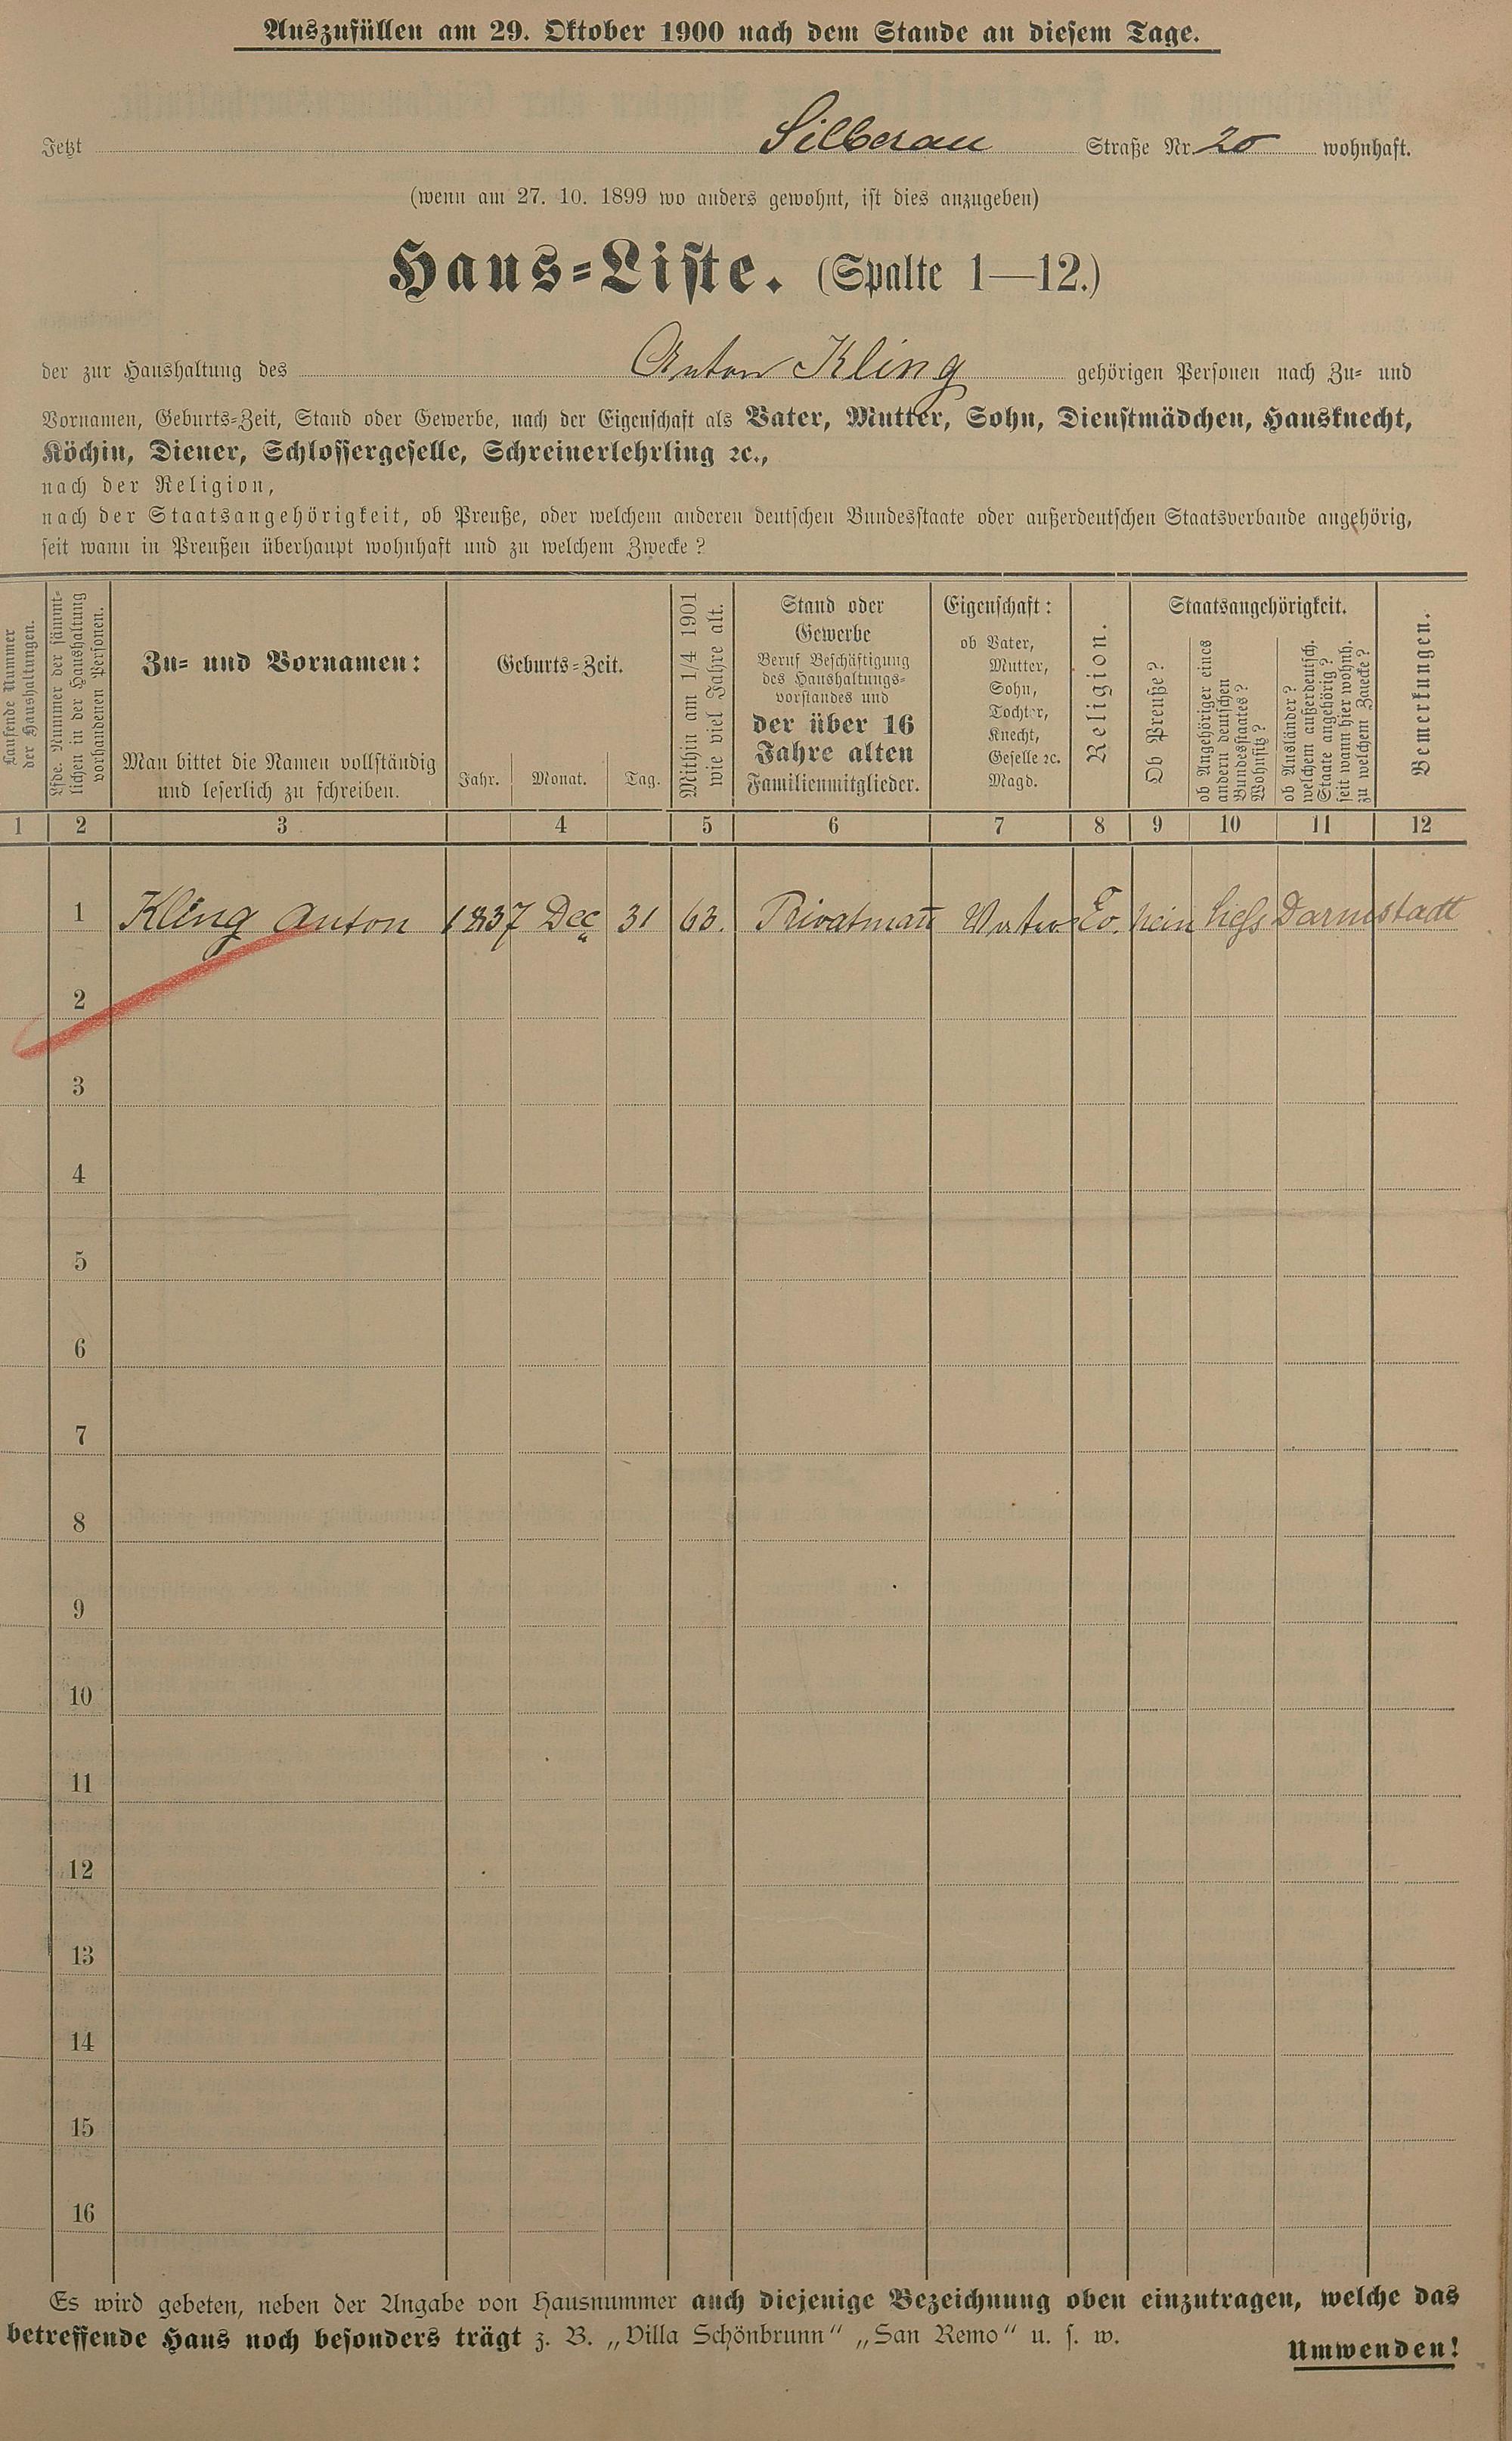 Auszufüllen am 29. Oktober 1900 nach dem Stande an diesem Tage.
Jetzt Silberau Straße Nr. 20 wohnhaft.
(wenn am 27. 10. 1899 wo anders gewohnt, ist dies anzugeben)
Haus-Liste. (Spalte 1—12.)
der zur Haushaltung des Anton Kling gehörigen Personen nach Zu- und
Vornamen, Geburts-Zeit, Stand oder Gewerbe, nach der Eigenschaft als Vater, Mutter, Sohn, Dienstmädchen, Hausknecht,
Köchin, Diener, Schlossergeselle, Schreinerlehrling ꝛc.,
nach der Religion,
nach der Staatsangehörigkeit, ob Preuße, oder welchem anderen deutschen Bundesstaate oder außerdeutschen Staatsverbande angehörig,
seit wann in Preußen überhaupt wohnhaft und zu welchem Zwecke?
Laufende Nummer
der Haushaltungen.
Lfde. Nummer der sämmt-
lichen in der Haushaltung
vorhandenen Personen.
Zu- und Vornamen:
Man bittet die Namen vollständig
und leserlich zu schreiben.
Geburts-Zeit.
Jahr. Monat. Tag.
Mithin am 1/4 1901
wie viel Jahre alt.
Stand oder
Gewerbe
Beruf Beschäftigung
des Haushaltungs-
vorstandes und
der über 16
Jahre alten
Familienmitglieder.
Eigenschaft:
ob Vater,
Mutter,
Sohn,
Tochter,
Knecht,
Geselle ꝛc.
Magd.
Religion.
Staatsangehörigkeit.
Ob Preuße?
ob Angehöriger eines
andern deutschen
Bundesstaates?
Wohnsitz?
ob Ausländer?
welchem außerdeutsch.
Staate angehörig?
seit wann hier wohnh.
zu welchem Zwecke?
Bemerkungen.
1 2 3 4 5 6 7 8 9 10 11 12
1 Kling Anton 1837 Dec 31 63. Privatmañ Vater Ev. nein hess Darmstadt
2
3
4
5
6
7
8
9
10
11
12
13
14
15
16
Es wird gebeten, neben der Angabe von Hausnummer auch diejenige Bezeichnung oben einzutragen, welche das
betreffende Haus noch besonders trägt z. B. „Villa Schönbrunn" „San Remo" u. s. w.
Umwenden!